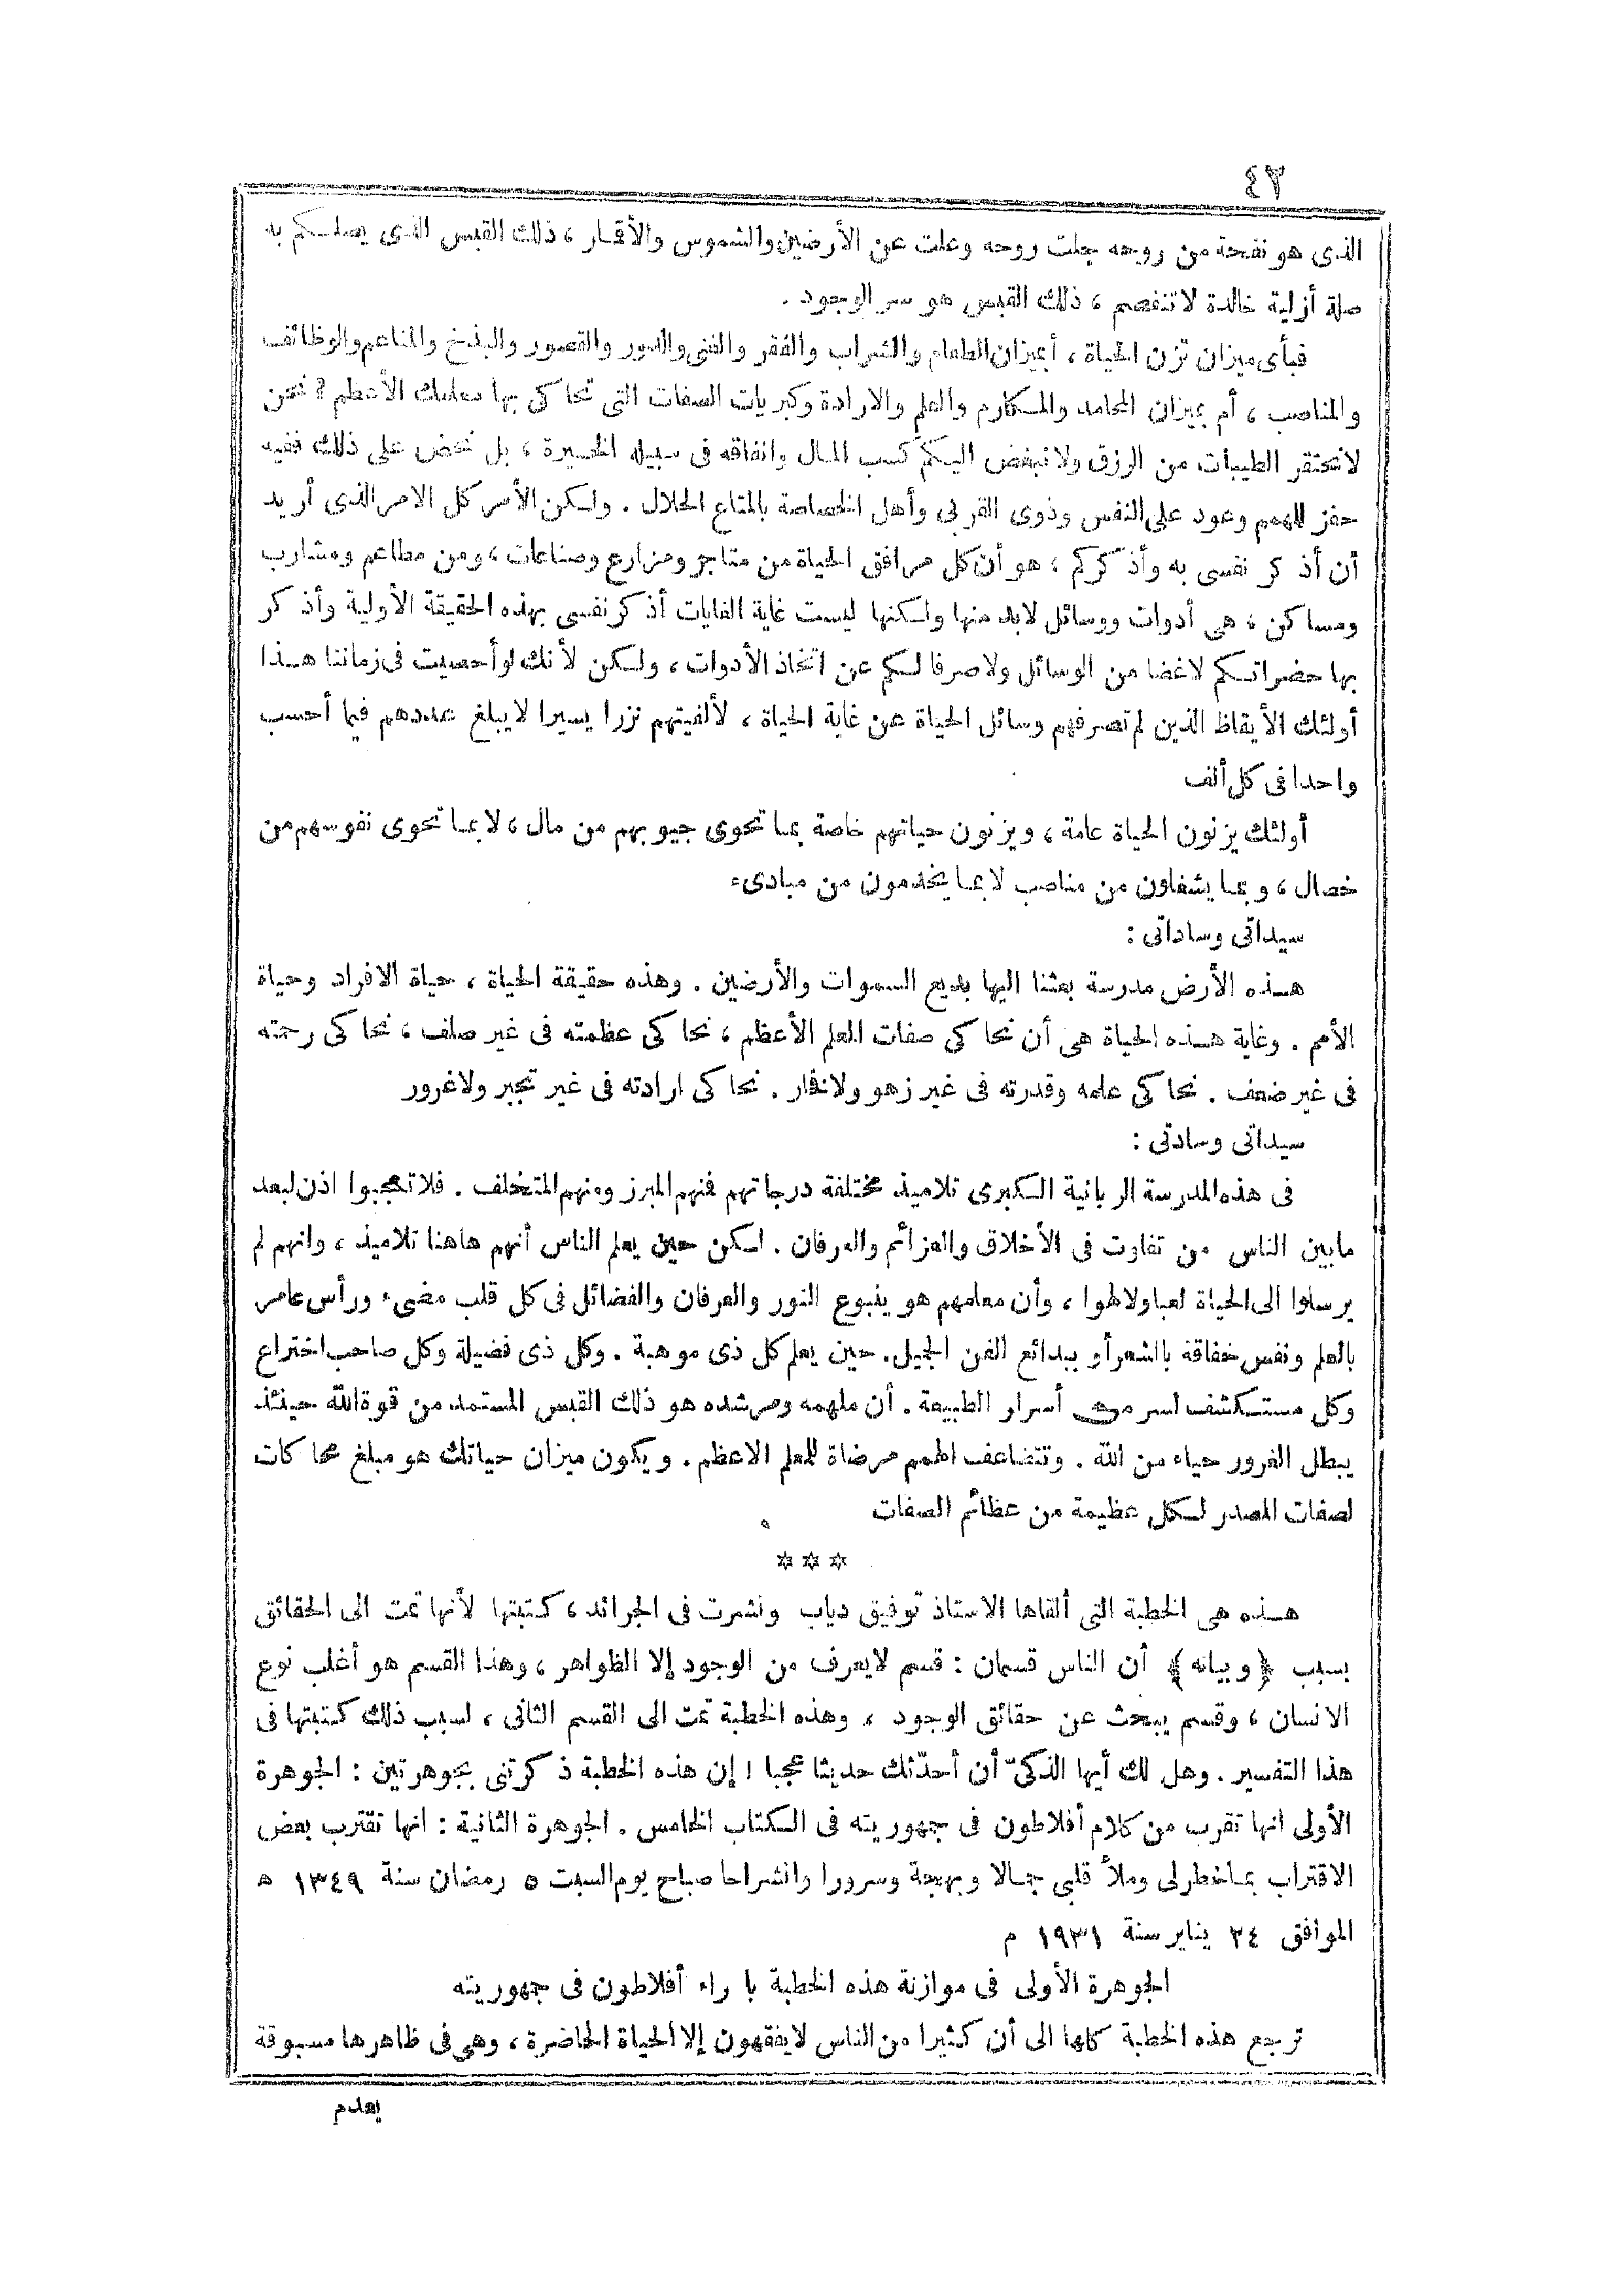 ٤٢
الذى هو نفحة من روحه جلت روحه وعلت عن الأرضين والشموس والأقمار ، ذلك القبس الذى يصلكم به
صلة أزلية خالدة لا تنفصم ، ذلك القبس هو سر الوجود .
فبأى ميزان تزن الحياة ، أبميزان الطعام والشراب والفقر والغنى والدور والقصور والبذخ والمناعم والوظائف
والمناصب ، أم بميزان المحامد والمكارم والعلم والارادة وكبريات الصفات التى تحاكى بها معلمك الأعظم ? نحن
لا نحتقر الطيبات من الرزق ولا نبغض اليكم كسب المال وانفاقه فى سبيله الخيرة ، بل نحض على ذلك ففيه
حفز للهمم وعود على النفس وذوى القربى وأهل الخصاصة بالمتاع الحلال . ولكن الأمر كل الامر الذى أريد
أن أذكر نفسى به وأذكركم ، هو أن كل مرافق الحياة من متاجر ومزارع وصناعات ، ومن مطاعم ومشارب
ومساكن ، هى أدوات ووسائل لابد منها ولكنها ليست غاية الغايات أذكر نفسى بهذه الحقيقة الأولية وأذكر
بها حضراتكم لا غضا من الوسائل ولا صرفا لكم عن اتخاذ الأدوات ، ولكن لأنك لو أحصيت فى زماننا هذا
أولئك الأيقاظ الذين لم تصرفهم وسائل الحياة عن غاية الحياة ، لألفيتهم نزرا يسيرا لا يبلغ عددهم فيما أحسب
واحدا فى كل ألف
أولئك يزنون الحياة عامة ، ويزنون حياتهم خاصة بما تحوى جيوبهم من مال ، لا بما تحوى نفوسهم من
خصال ، وبما يشغلون من مناصب لا بما يخدمون من مبادىء
سيداتى وساداتى :
هذه الأرض مدرسة بعثنا اليها بديع السموات والأرضين . وهذه حقيقة الحياة ، حياة الافراد وحياة
الأمم . وغاية هذه الحياة هى أن نحاكى صفات المعلم الأعظم ، نحاكى عظمته فى غير صلف ، نحاكى رحمته
فى غير ضعف . نحاكى علمه وقدرته فى غير زهو ولا فخار . نحاكى ارادته فى غير تجبر ولا غرور
سيداتى وسادتى :
فى هذه المدرسة الربانية الكبرى تلاميذ مختلفة درجاتهم فمنهم المبرز ومنهم المتخلف . فلا تعجبوا اذن لبعد
مابين الناس من تفاوت فى الأخلاق والعزائم والعرفان . لكن حين يعلم الناس أنهم هاهنا تلاميذ ، وانهم لم
يرسلوا الى الحياة لعبا ولا لهوا ، وأن معلمهم هو ينبوع النور والعرفان والفضائل فى كل قلب مضىء ورأس عامر
بالعلم ونفس خفاقة بالشعر أو ببدائع الفن الجميل. حين يعلم كل ذى موهبة . وكل ذى فضيلة وكل صاحب اختراع
وكل مستكشف لسر من أسرار الطبيعة . أن ملهمه ومرشده هو ذلك القبس المستمد من قوة الله حينئذ
يبطل الغرور حياء من الله . وتتضاعف الهمم مرضاة للمعلم الاعظم . ويكون ميزان حياتك هو مبلغ محاكات
لصفات المصدر لكل عظيمة من عظائم الصفات
* * *
هذه هى الخطبة التى ألقاها الاستاذ توفيق دياب ونشرت فى الجرائد ، كتبتها لأنها تمت الى الحقائق
بسبب ﴿ وبيانه ﴾ أن الناس قسمان : قسم لا يعرف من الوجود إلا الظواهر ، وهذا القسم هو أغلب نوع
الانسان ، وقسم يبحث عن حقائق الوجود ، وهذه الخطبة تمت الى القسم الثانى ، لسبب ذلك كتبتها فى
هذا التفسير . وهل لك أيها الذكىّ أن أحدّثك حديثا عجبا ! إن هذه الخطبة ذكرتنى بجوهرتين : الجوهرة
الأولى انها تقرب من كلام أفلاطون فى جمهوريته فى الكتاب الخامس . الجوهرة الثانية : انها تقترب بعض
الاقتراب بما خطر لى وملأ قلبى جمالا وبهجة وسرورا وانشراحا صباح يوم السبت ٥ رمضان سنة ١٣٤٩ ه
الموافق ٢٤ يناير سنة ١٩٣١ م
الجوهرة الأولى فى موازنة هذه الخطبة با راء أفلاطون فى جمهوريته
ترجع هذه الخطبة كلها الى أن كثيرا من الناس لا يفقهون إلا الحياة الحاضرة ، وهى فى ظاهرها مسبوقة
بعدم